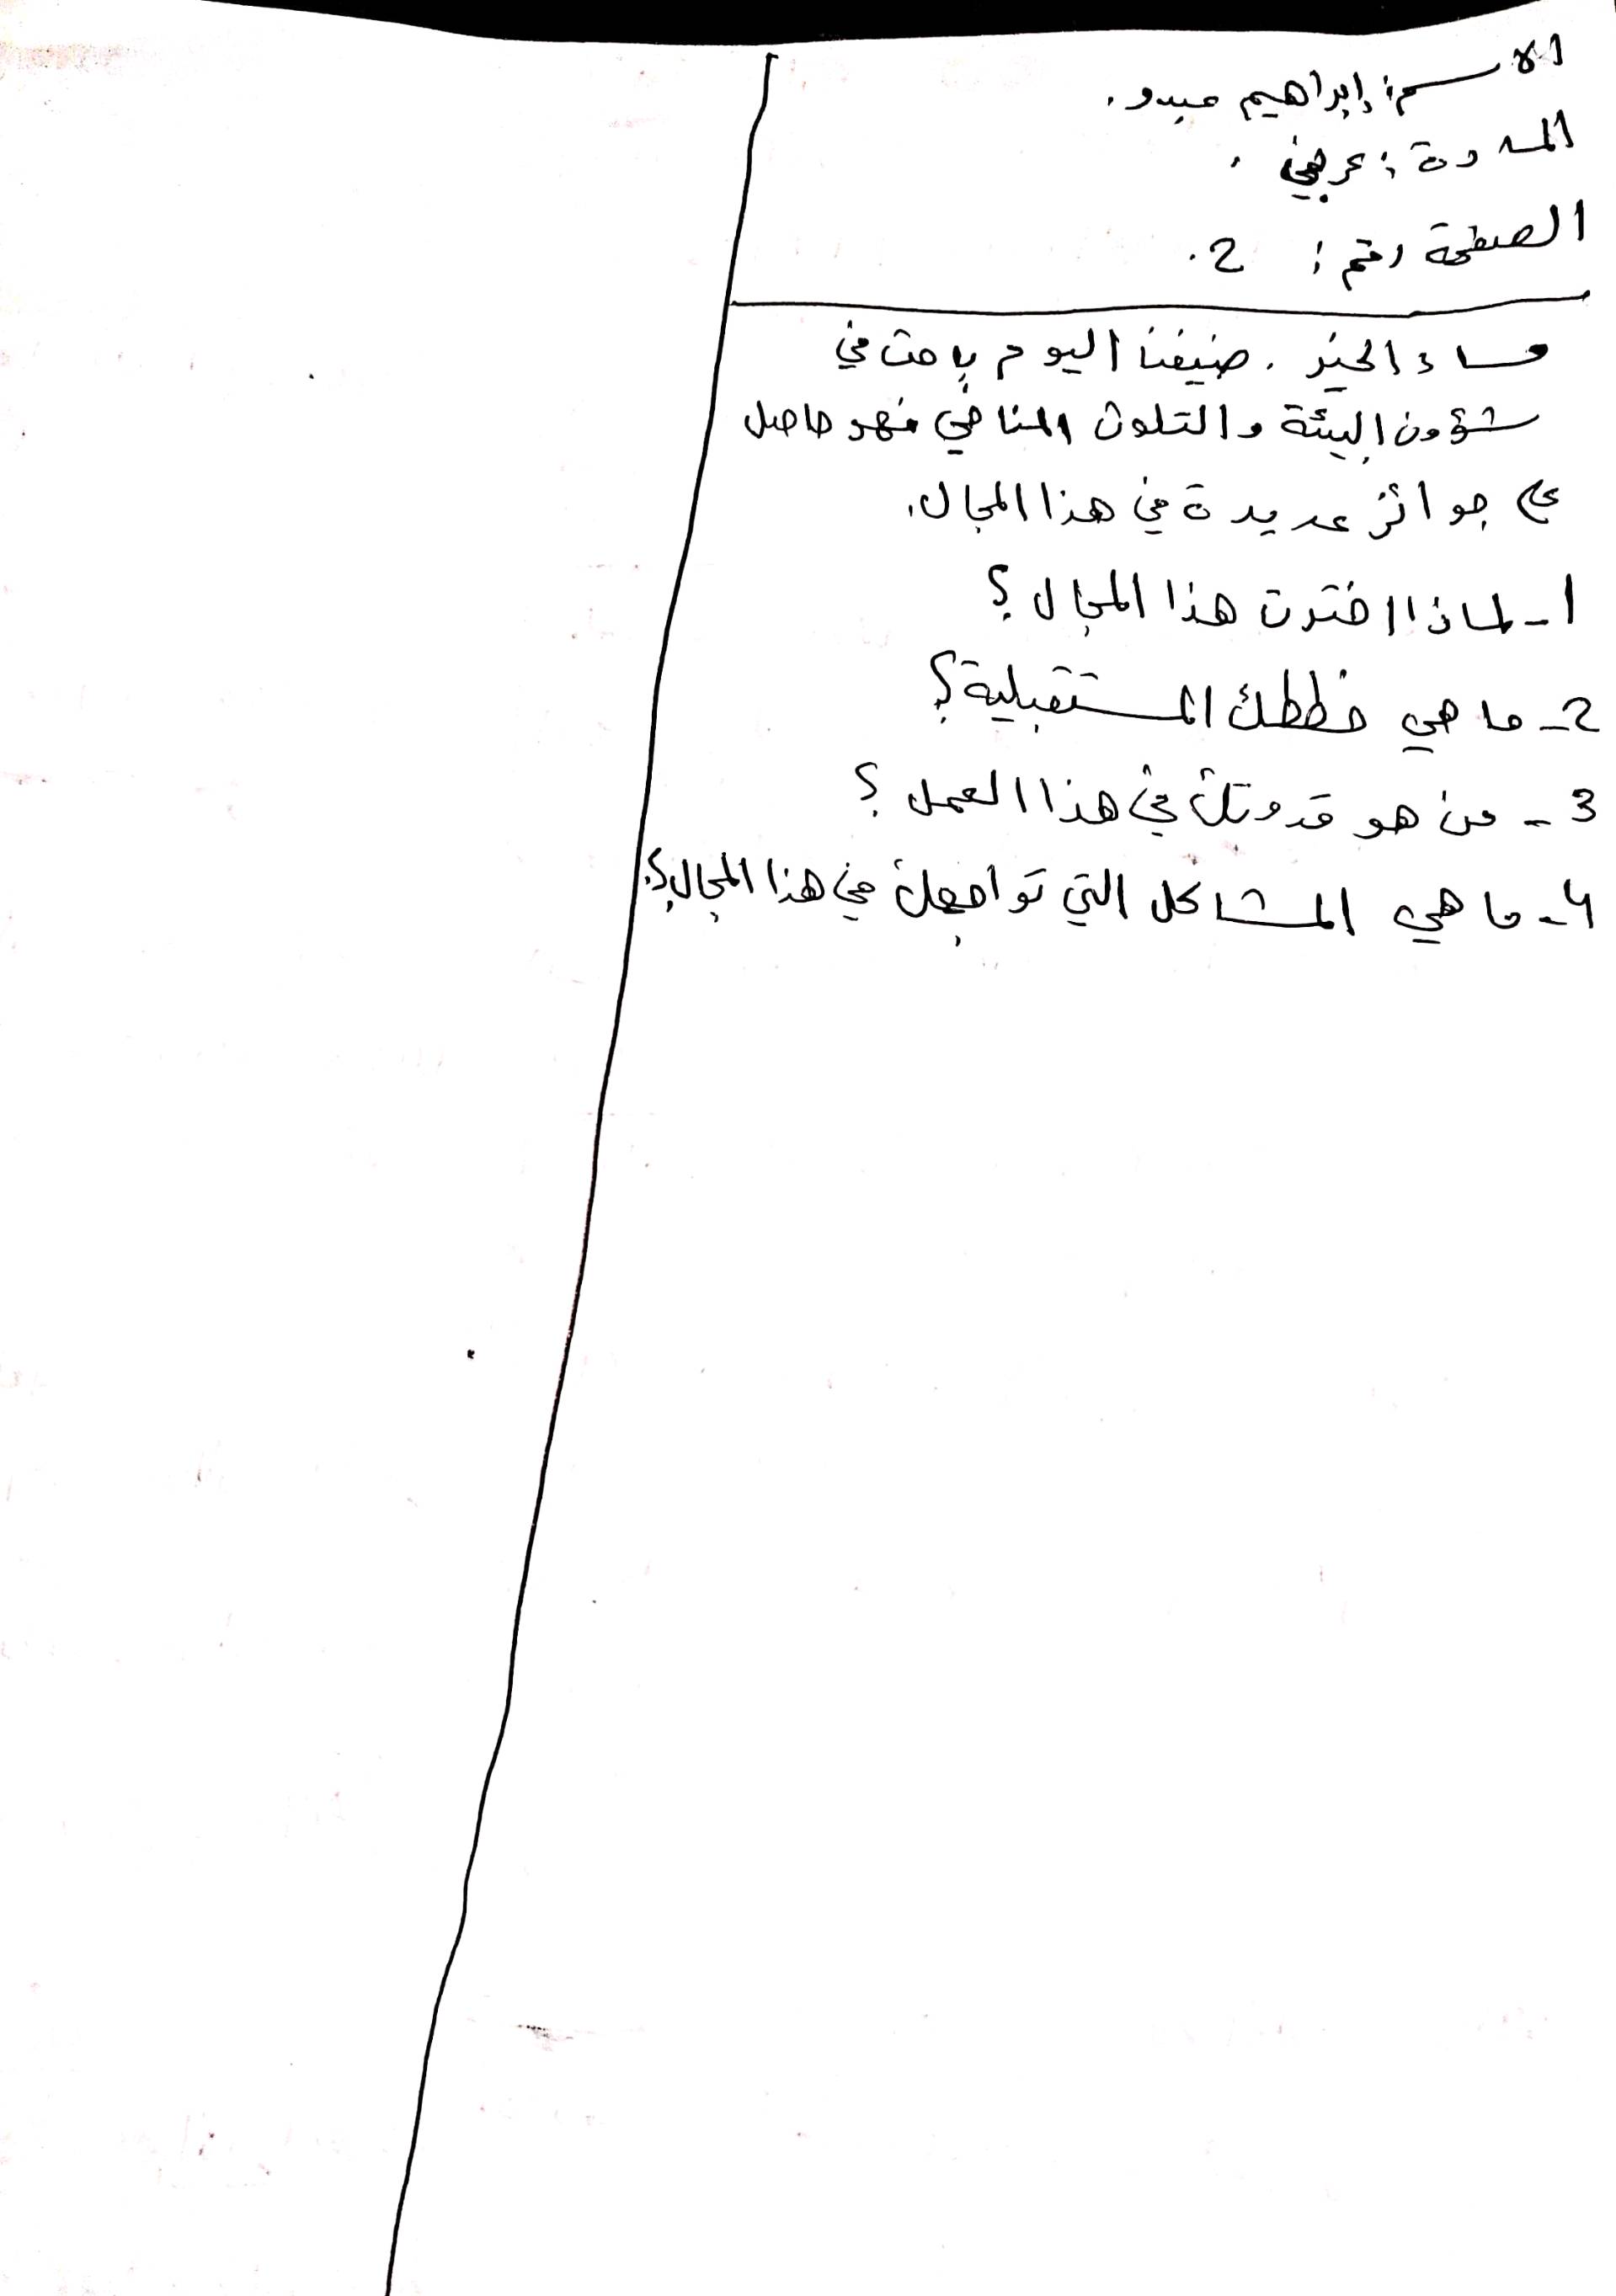 الاسم: إبراهيم ميدو.
المادة: عربي.
الصفحة رقم: 2.
مساء الخير. ضيفنا اليوم باحث في
شؤون البيئة والتلوث المناخي فهو حاصل
على جوائز عديدة في هذا المجال.
1- لماذا اخترت هذا المجال؟
2- ما هي خططك المستقبلية؟
3- من هو قدوتك في هذا العمل؟
4- ما هي المشاكل التي تواجهك في هذا المجال؟